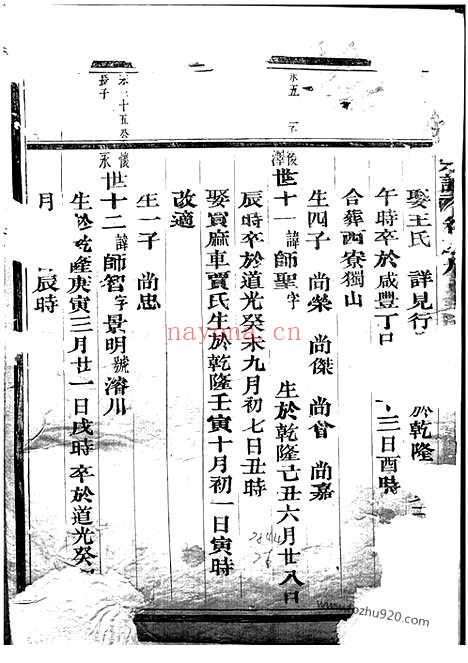 娶王氏 詳見行 於乾隆
午時卒於咸豐丁 三日酉時
合葬西寮獨山
生四子 尚榮 尚傑 尚 尚嘉
世十一 諱師聖字 生於乾隆己丑六月廿八日
辰時卒於道光癸未九月初七日丑時
娶賓麻車賈氏生於乾隆壬寅十月初一日寅時
改適
生一子 尚忠
世十二 諱師智字景明號濬川
生於乾隆庚寅三月廿一日戌時卒於道光癸
月 辰時
永二十五癸
長子
永五
nayona.cn
pozhu920.com